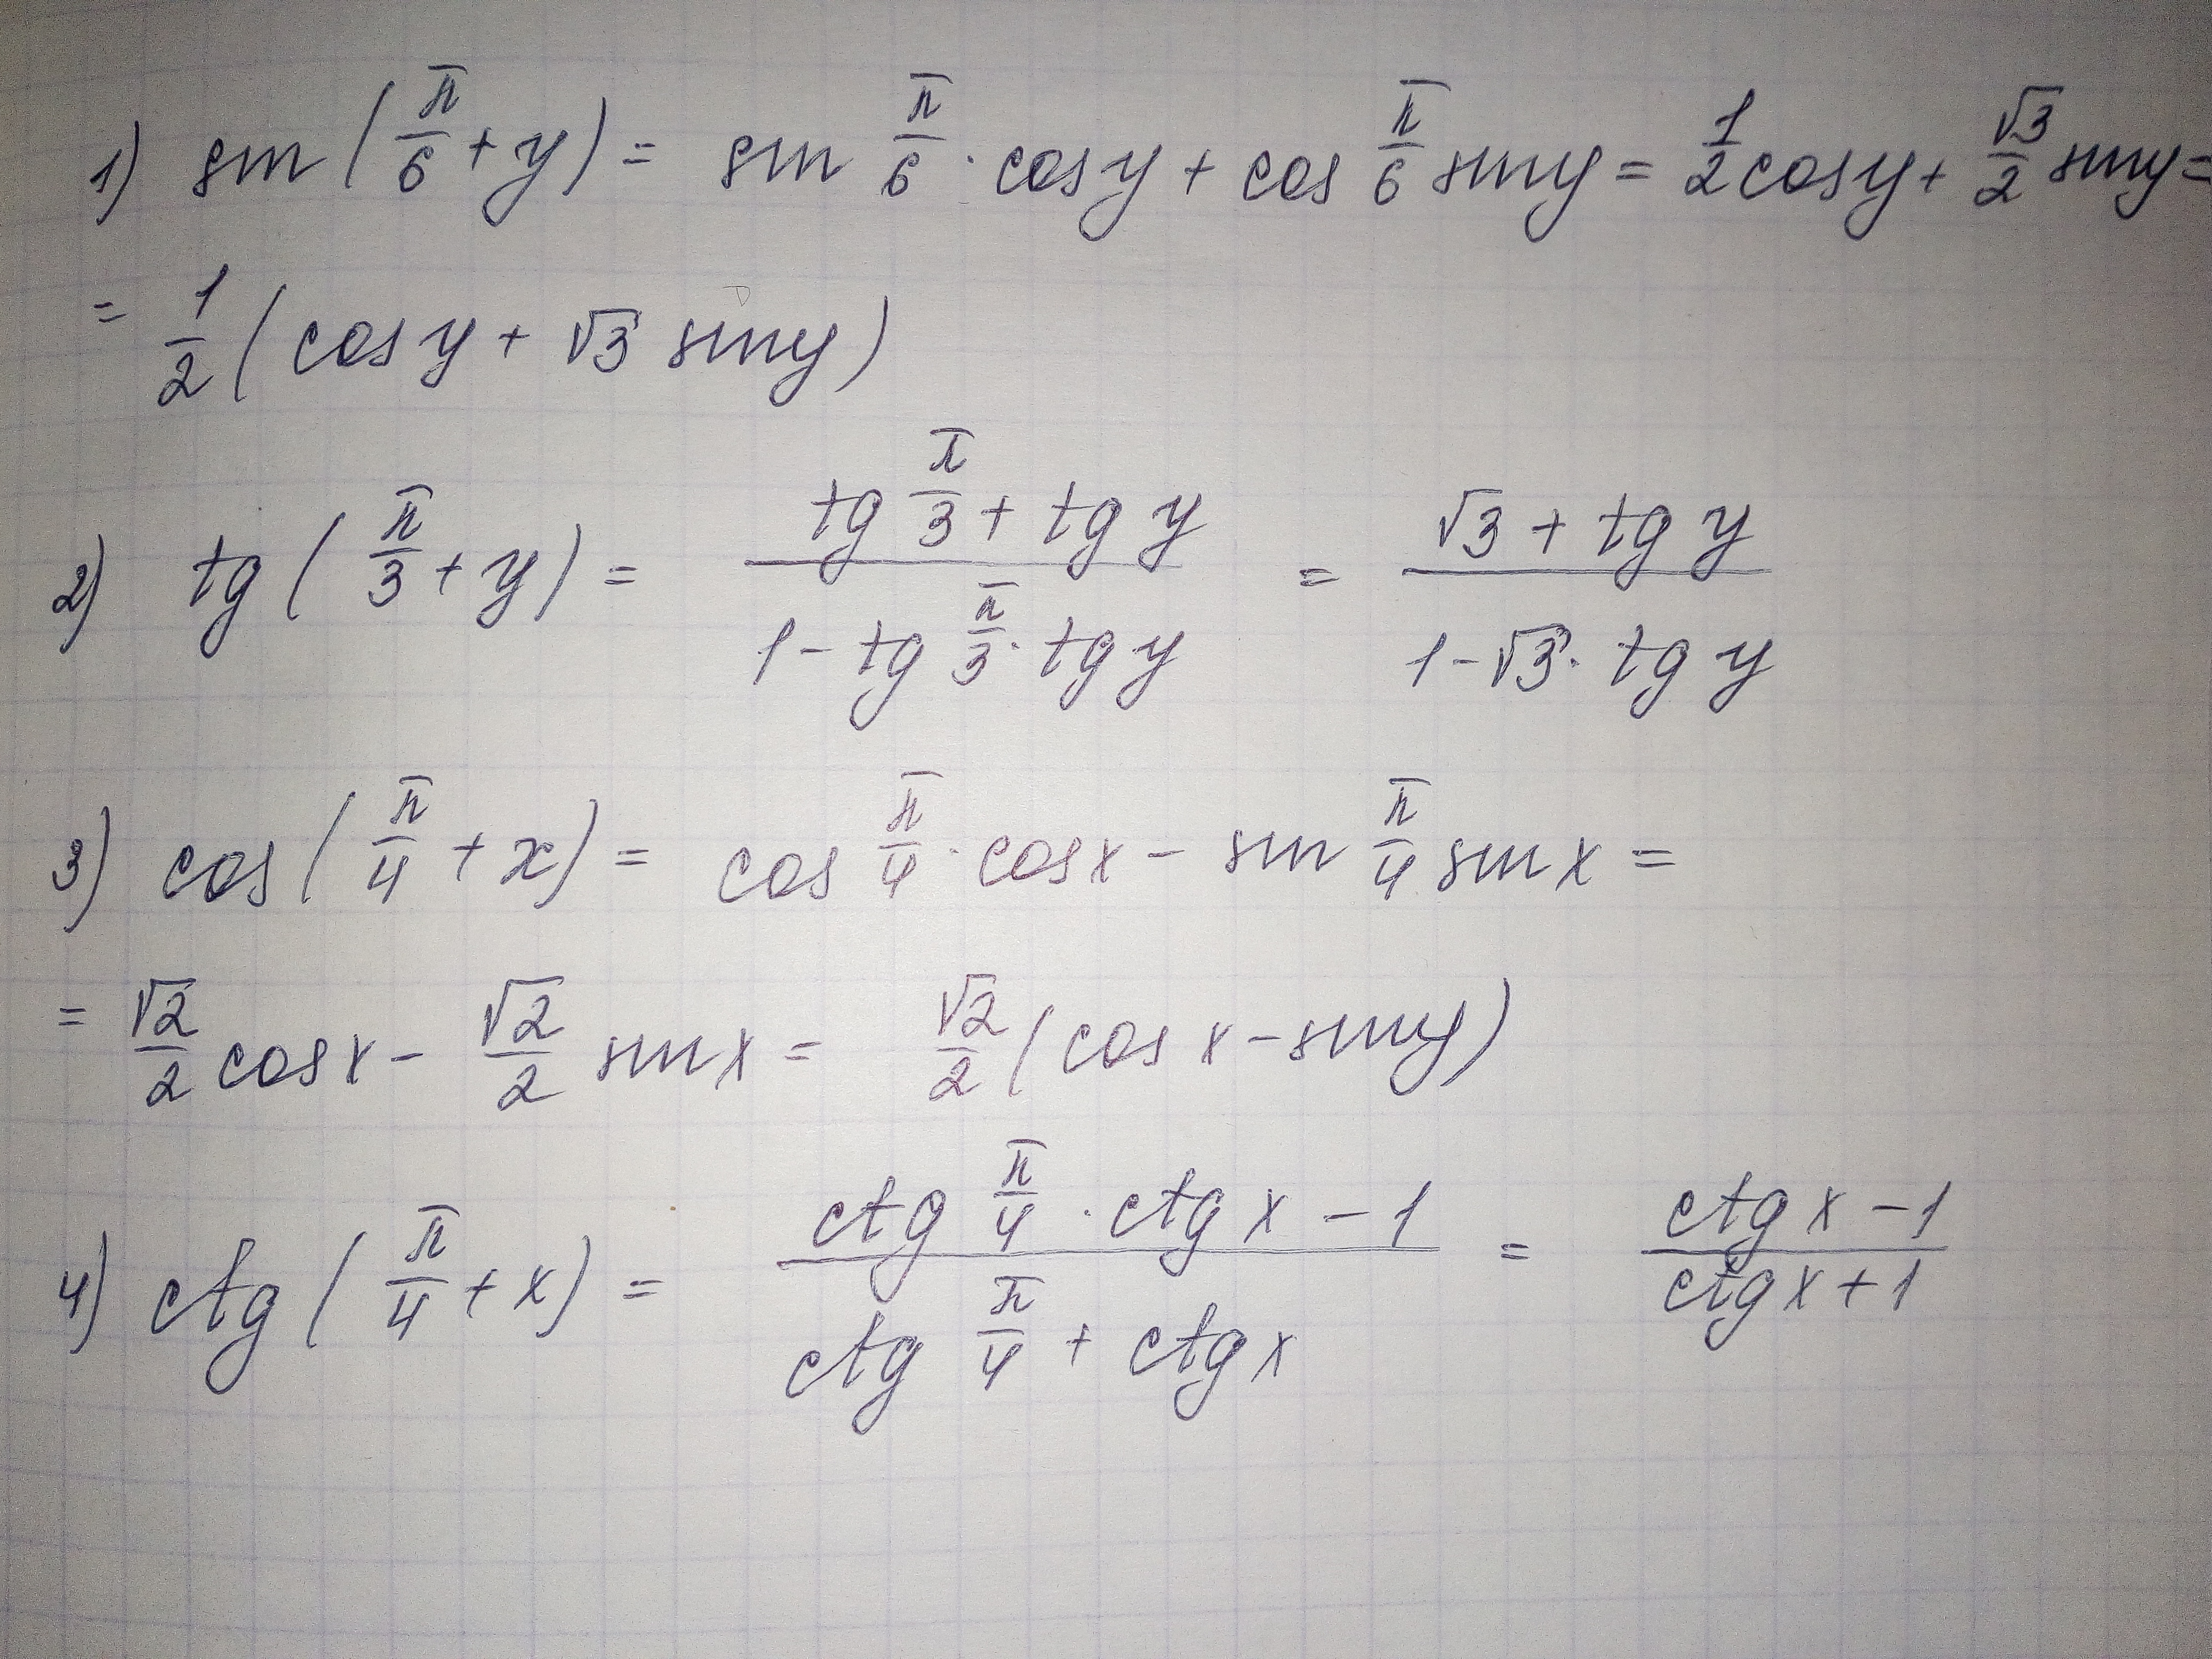 1) sin (π/6 + y) = sin π/6 · cos y + cos π/6 sin y = 1/2 cos y + √3/2 sin y =
= 1/2 (cos y + √3 sin y)
2) tg (π/3 + y) = (tg π/3 + tg y)/(1 - tg π/3 · tg y) = (√3 + tg y)/(1 - √3 · tg y)
3) cos (π/4 + x) = cos π/4 · cos x - sin π/4 sin x =
= √2/2 cos x - √2/2 sin x = √2/2 (cos x - sin y)
4) ctg (π/4 + x) = (ctg π/4 · ctg x - 1)/(ctg π/4 + ctg x) = (ctg x - 1)/(ctg x + 1)